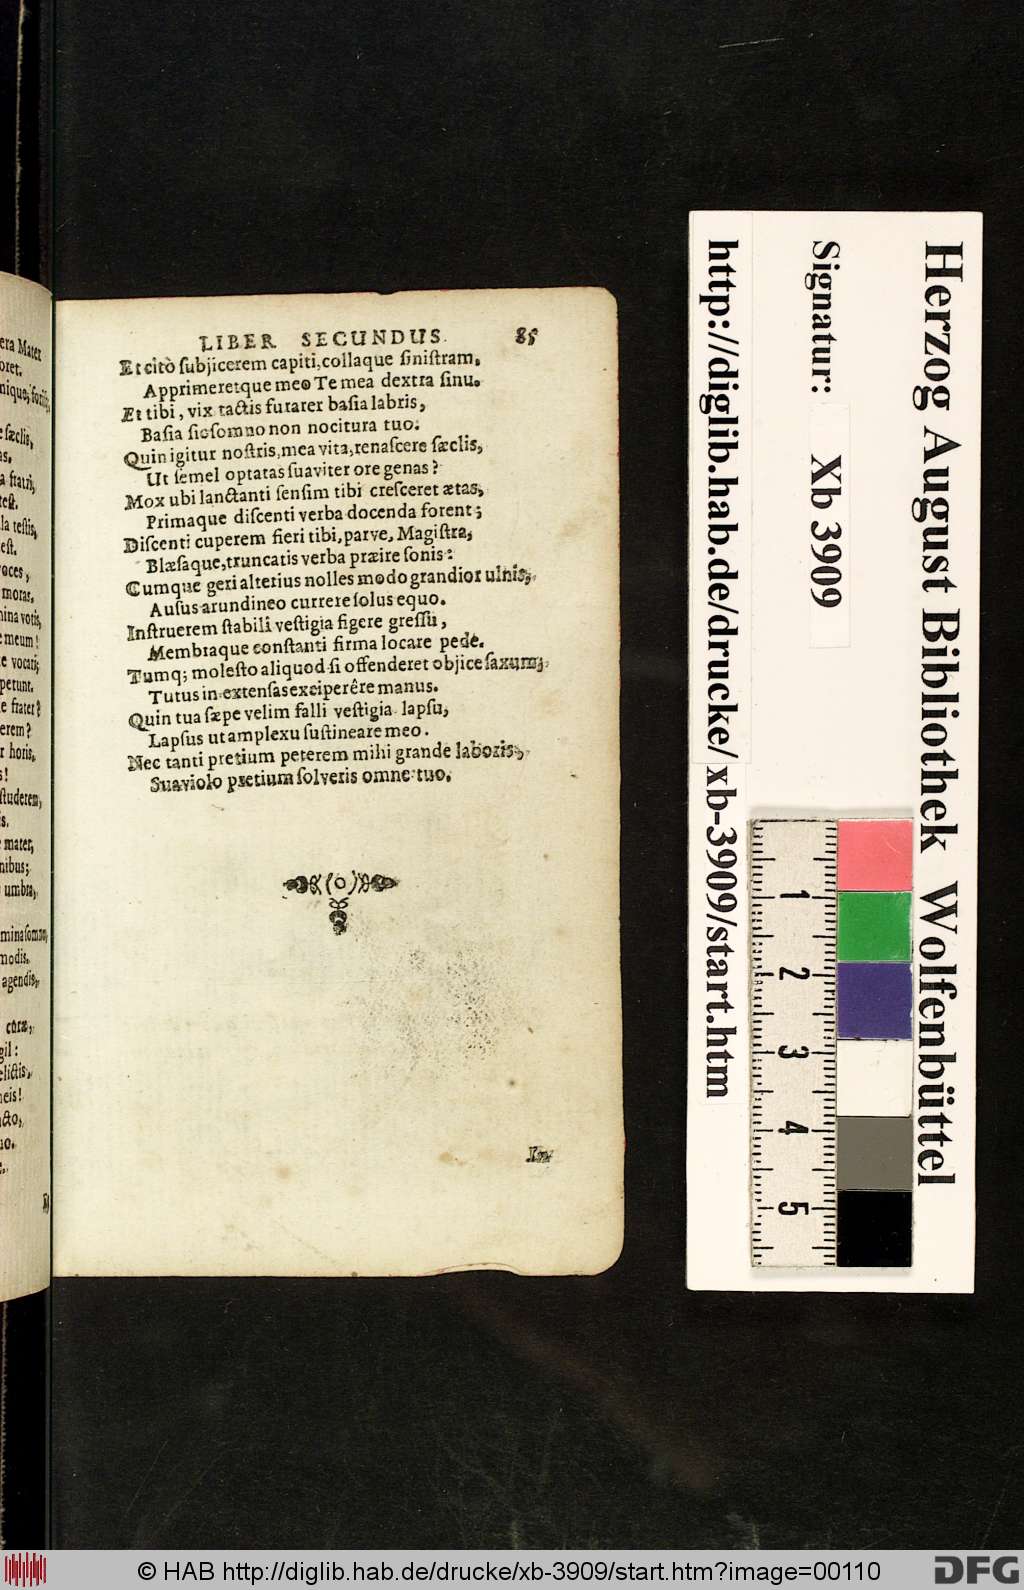 LIBER SECUNDUS. 85
Et citò subjicerem capiti, collaque sinistram.
Apprimeretque meo Te mea dextra sinu.
Et tibi, vix tactis furarer basia labris,
Basia sic somno non nocitura tuo.
Quin igitur nostris, mea vita, renascere sæclis,
Ut semel optatas suaviter ore genas?
Mox ubi lanctanti sensim tibi cresceret ætas,
Primaque discenti verba docenda forent;
Discenti cuperem fieri tibi, parve, Magistra,
Blæsaque, truncatis verba præire sonis:
Cumque geri alterius nolles modo grandior ulnis,
Ausus arundineo currere solus equo.
Instruerem stabili vestigia figere gressu,
Membraque constanti firma locare pede.
Tumq; molesto aliquod si offenderet objice saxum;
Tutus in extensas exciperêre manus.
Quin tua sæpe velim falli vestigia lapsu,
Lapsus ut amplexu sustineare meo.
Nec tanti pretium peterem mihi grande laboris,
Suaviolo pretium solveris omne tuo.
era Mater
oret.
nique,
sæclis,
as.
a fratri,
test.
la testis,
est.
voces,
moras.
mina votis,
e meum!
e vocati;
petunt.
e frater?
erem?
r horis,
s!
studerem,
is.
mater,
nibus;
umbra,
mina somno,
modis.
agendis,
curæ,
gil:
elictis,
neis!
acto,
uo.
Herzog August Bibliothek Wolfenbüttel
Signatur: Xb 3909
http://diglib.hab.de/drucke/xb-3909/start.htm
1
2
3
4
5
© HAB http://diglib.hab.de/drucke/xb-3909/start.htm?image=00110
DFG